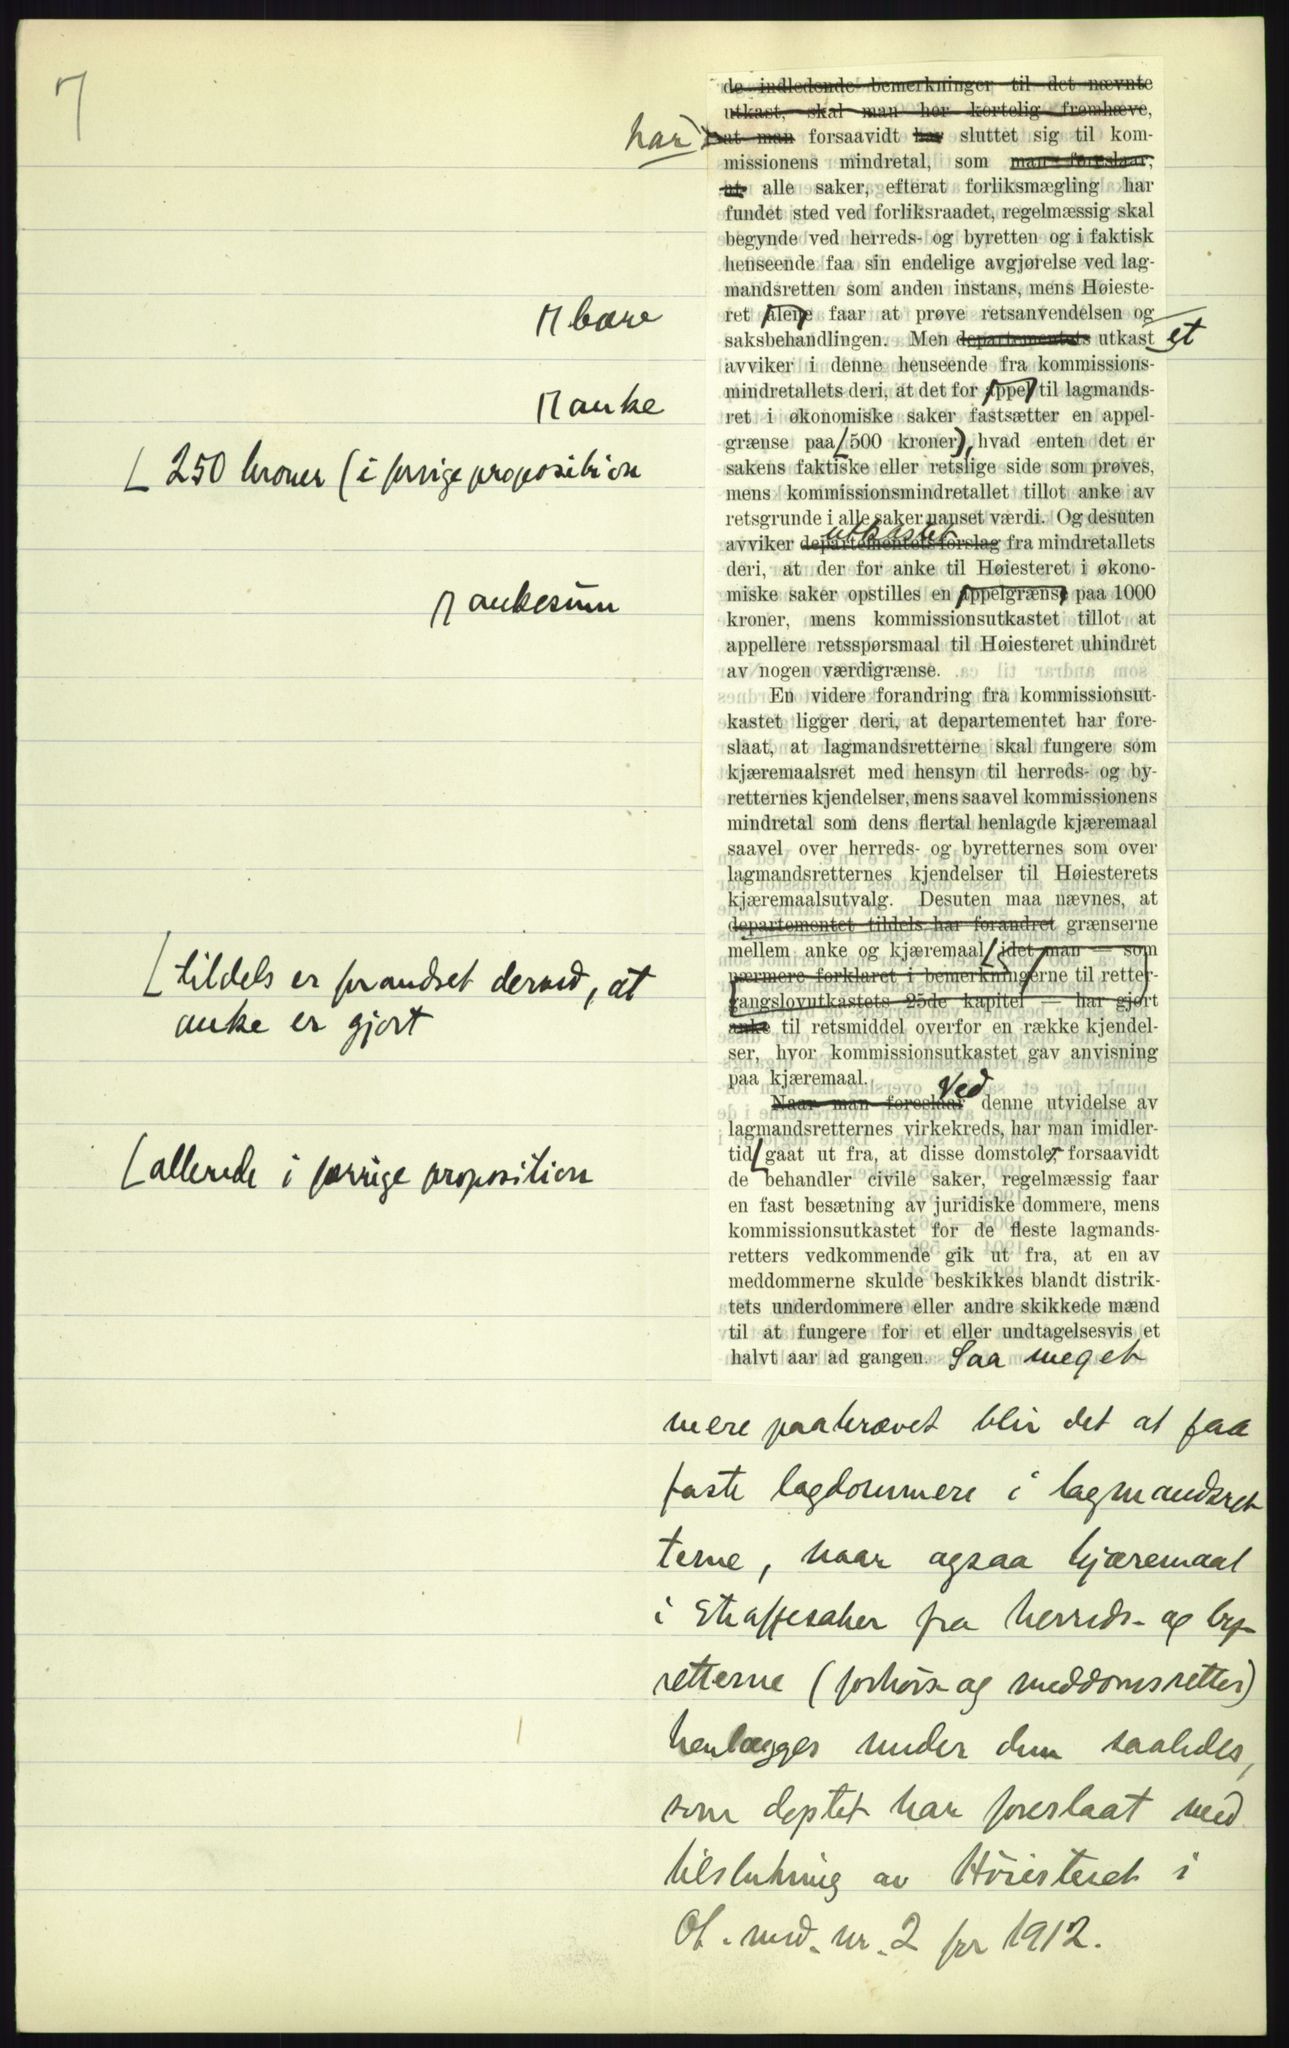 7
de indledende bemerkninger til det nævnte
utkast, skal man her kortelig fremhæve,
har
at man forsaavidt har sluttet sig til kom-
missionens mindretal, som man foreslaar,
at alle saker, efterat forliksmægling har
fundet sted ved forliksraadet, regelmæssig skal
begynde ved herreds- og byretten og i faktisk
henseende faa sin endelige avgjørelse ved lag-
mandsretten som anden instans, mens Høieste-
bare
ret alene faar at prøve retsanvendelsen og
saksbehandlingen. Men departementets utkast et
avviker i denne henseende fra kommissions-
mindretallets deri, at det for appel til lagmands-
anke
ret i økonomiske saker fastsætter en appel-
grænse paa 500 kroner), hvad enten det er
250 kroner (i forrige proposition
sakens faktiske eller retslige side som prøves,
mens kommissionsmindretallet tillot anke av
retsgrunde i alle saker uanset værdi. Og desuten
utkastet
avviker departementets forslag fra mindretallets
deri, at der for anke til Høiesteret i økono-
miske saker opstilles en appelgrænse paa 1000
ankesum
kroner, mens kommissionsutkastet tillot at
appellere retsspørsmaal til Høiesteret uhindret
av nogen værdigrænse.
En videre forandring fra kommissionsut-
kastet ligger deri, at departementet har fore-
slaat, at lagmandsretterne skal fungere som
kjæremaalsret med hensyn til herreds- og by-
retternes kjendelser, mens saavel kommissionens
mindretal som dens flertal henlagde kjæremaal
saavel over herreds- og byretternes som over
lagmandsretternes kjendelser til Høiesterets
kjæremaalsutvalg. Desuten maa nævnes, at
departementet tildels har forandret grænserne
mellem anke og kjæremaal, idet man — som
tildels er forandret derved, at
nærmere forklaret i bemerkningerne til retter-
gangslovutkastets 25de kapitel — har gjort
anke er gjort
anke til retsmiddel overfor en række kjendel-
ser, hvor kommissionsutkastet gav anvisning
paa kjæremaal.
Ved
Naar man foreslaar denne utvidelse av
lagmandsretternes virkekreds, har man imidler-
tid gaat ut fra, at disse domstoler, forsaavidt
allerede i forrige proposition
de behandler civile saker, regelmæssig faar
en fast besætning av juridiske dommere, mens
kommissionsutkastet for de fleste lagmands-
retters vedkommende gik ut fra, at en av
meddommerne skulde beskikkes blandt distrik-
tets underdommere eller andre skikkede mænd
til at fungere for et eller undtagelsesvis et
halvt aar ad gangen. Saa meget
mere paakrævet blir det at faa
faste lagdommere i lagmandsret
terne, naar ogsaa kjæremaal
i straffesaker fra herreds- og by-
retterne (forhørs- og meddomsretter)
henlægges under dem saaledes,
som deptet har foreslaat med
tilslutning av Høiesteret i
Ot. med. nr. 2 for 1912.